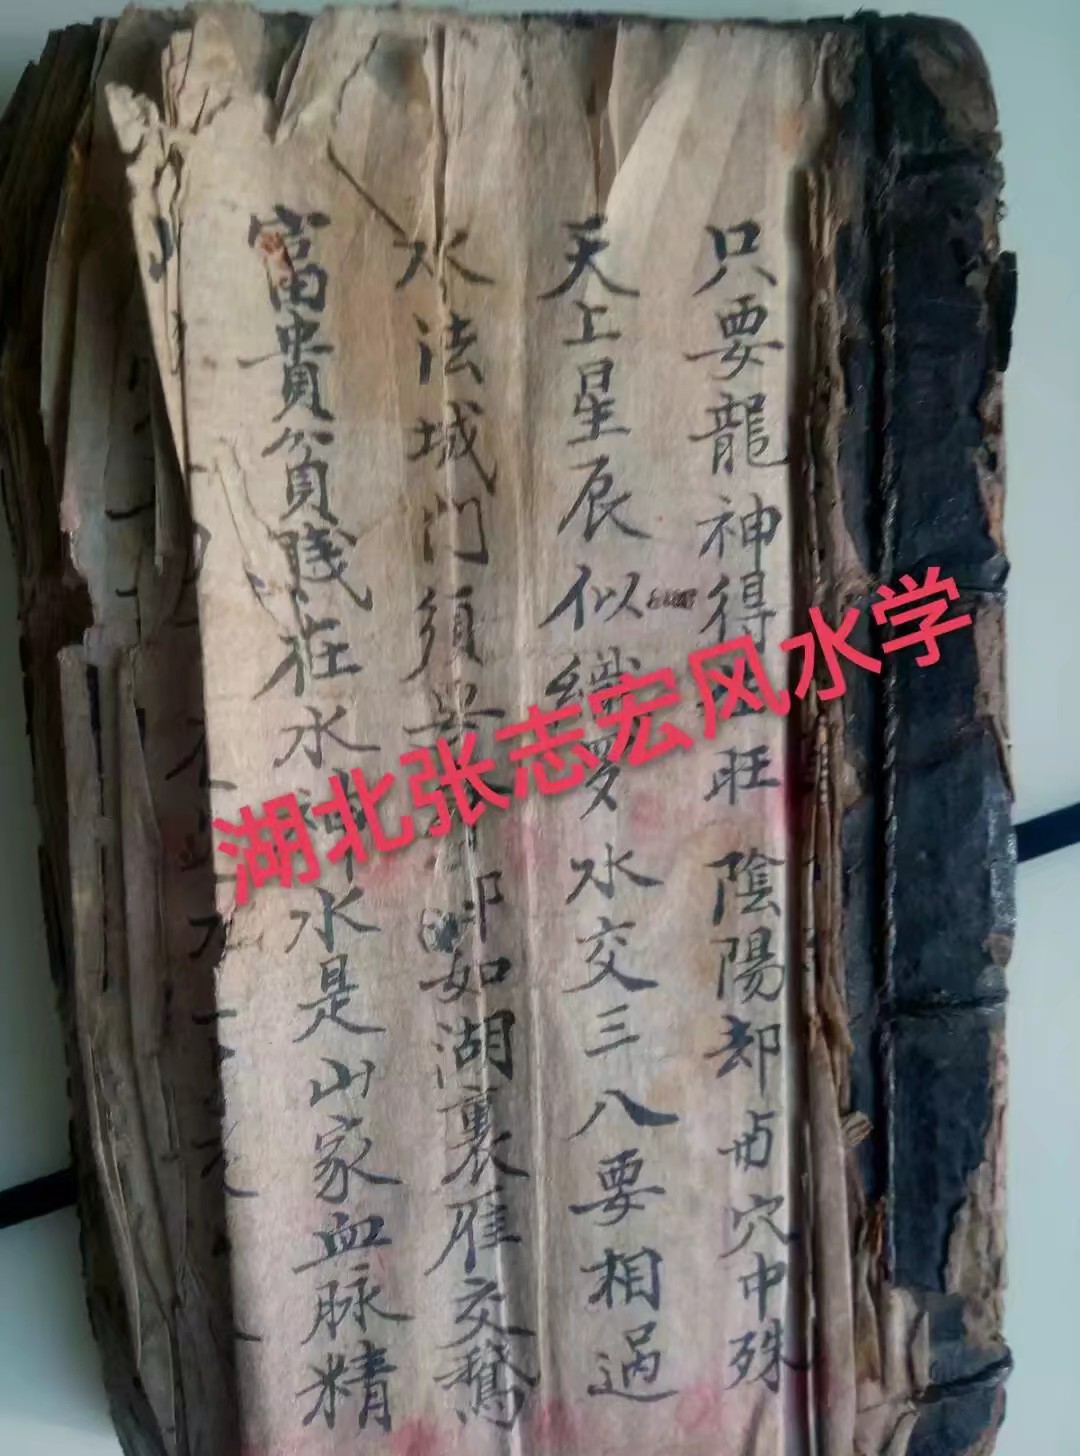 只要龍神得旺陰陽却与穴中殊
天上星辰似織罗水交三八要相過
水法城門須如湖裏雁交鵝
富貴貧賤在水神水是山家血脉精
湖北张志宏风水学